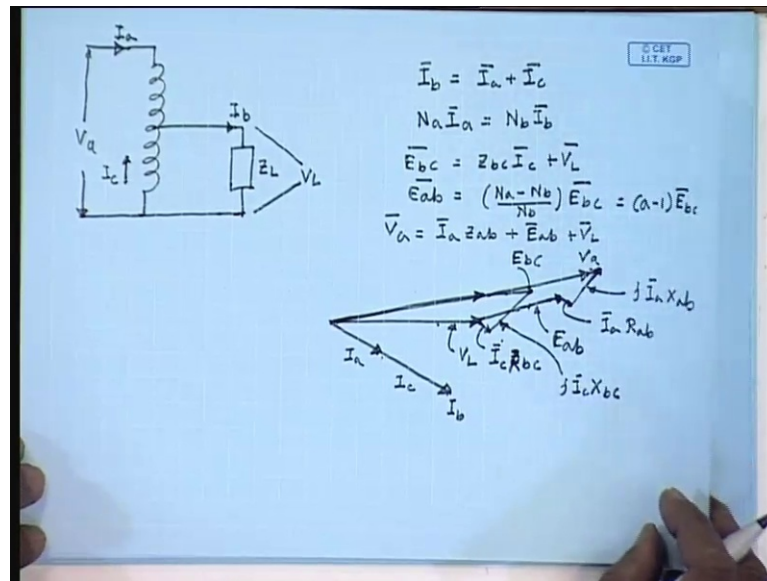 © CET
I.I.T. KGP
Ia
Va
Ic
Ib
ZL
VL
Īb = Īa + Īc
Na Īa = Nb Īb
Ēbc = Zbc Īc + V̄L
Ēab = (Na - Nb / Nb) Ēbc = (a-1) Ēbc
V̄a = Īa Zab + Ēab + V̄L
Ebc
Va
j Īa Xab
Īa Rab
Eab
VL
Īc Rbc
j Īc Xbc
Ia
Ic
Ib